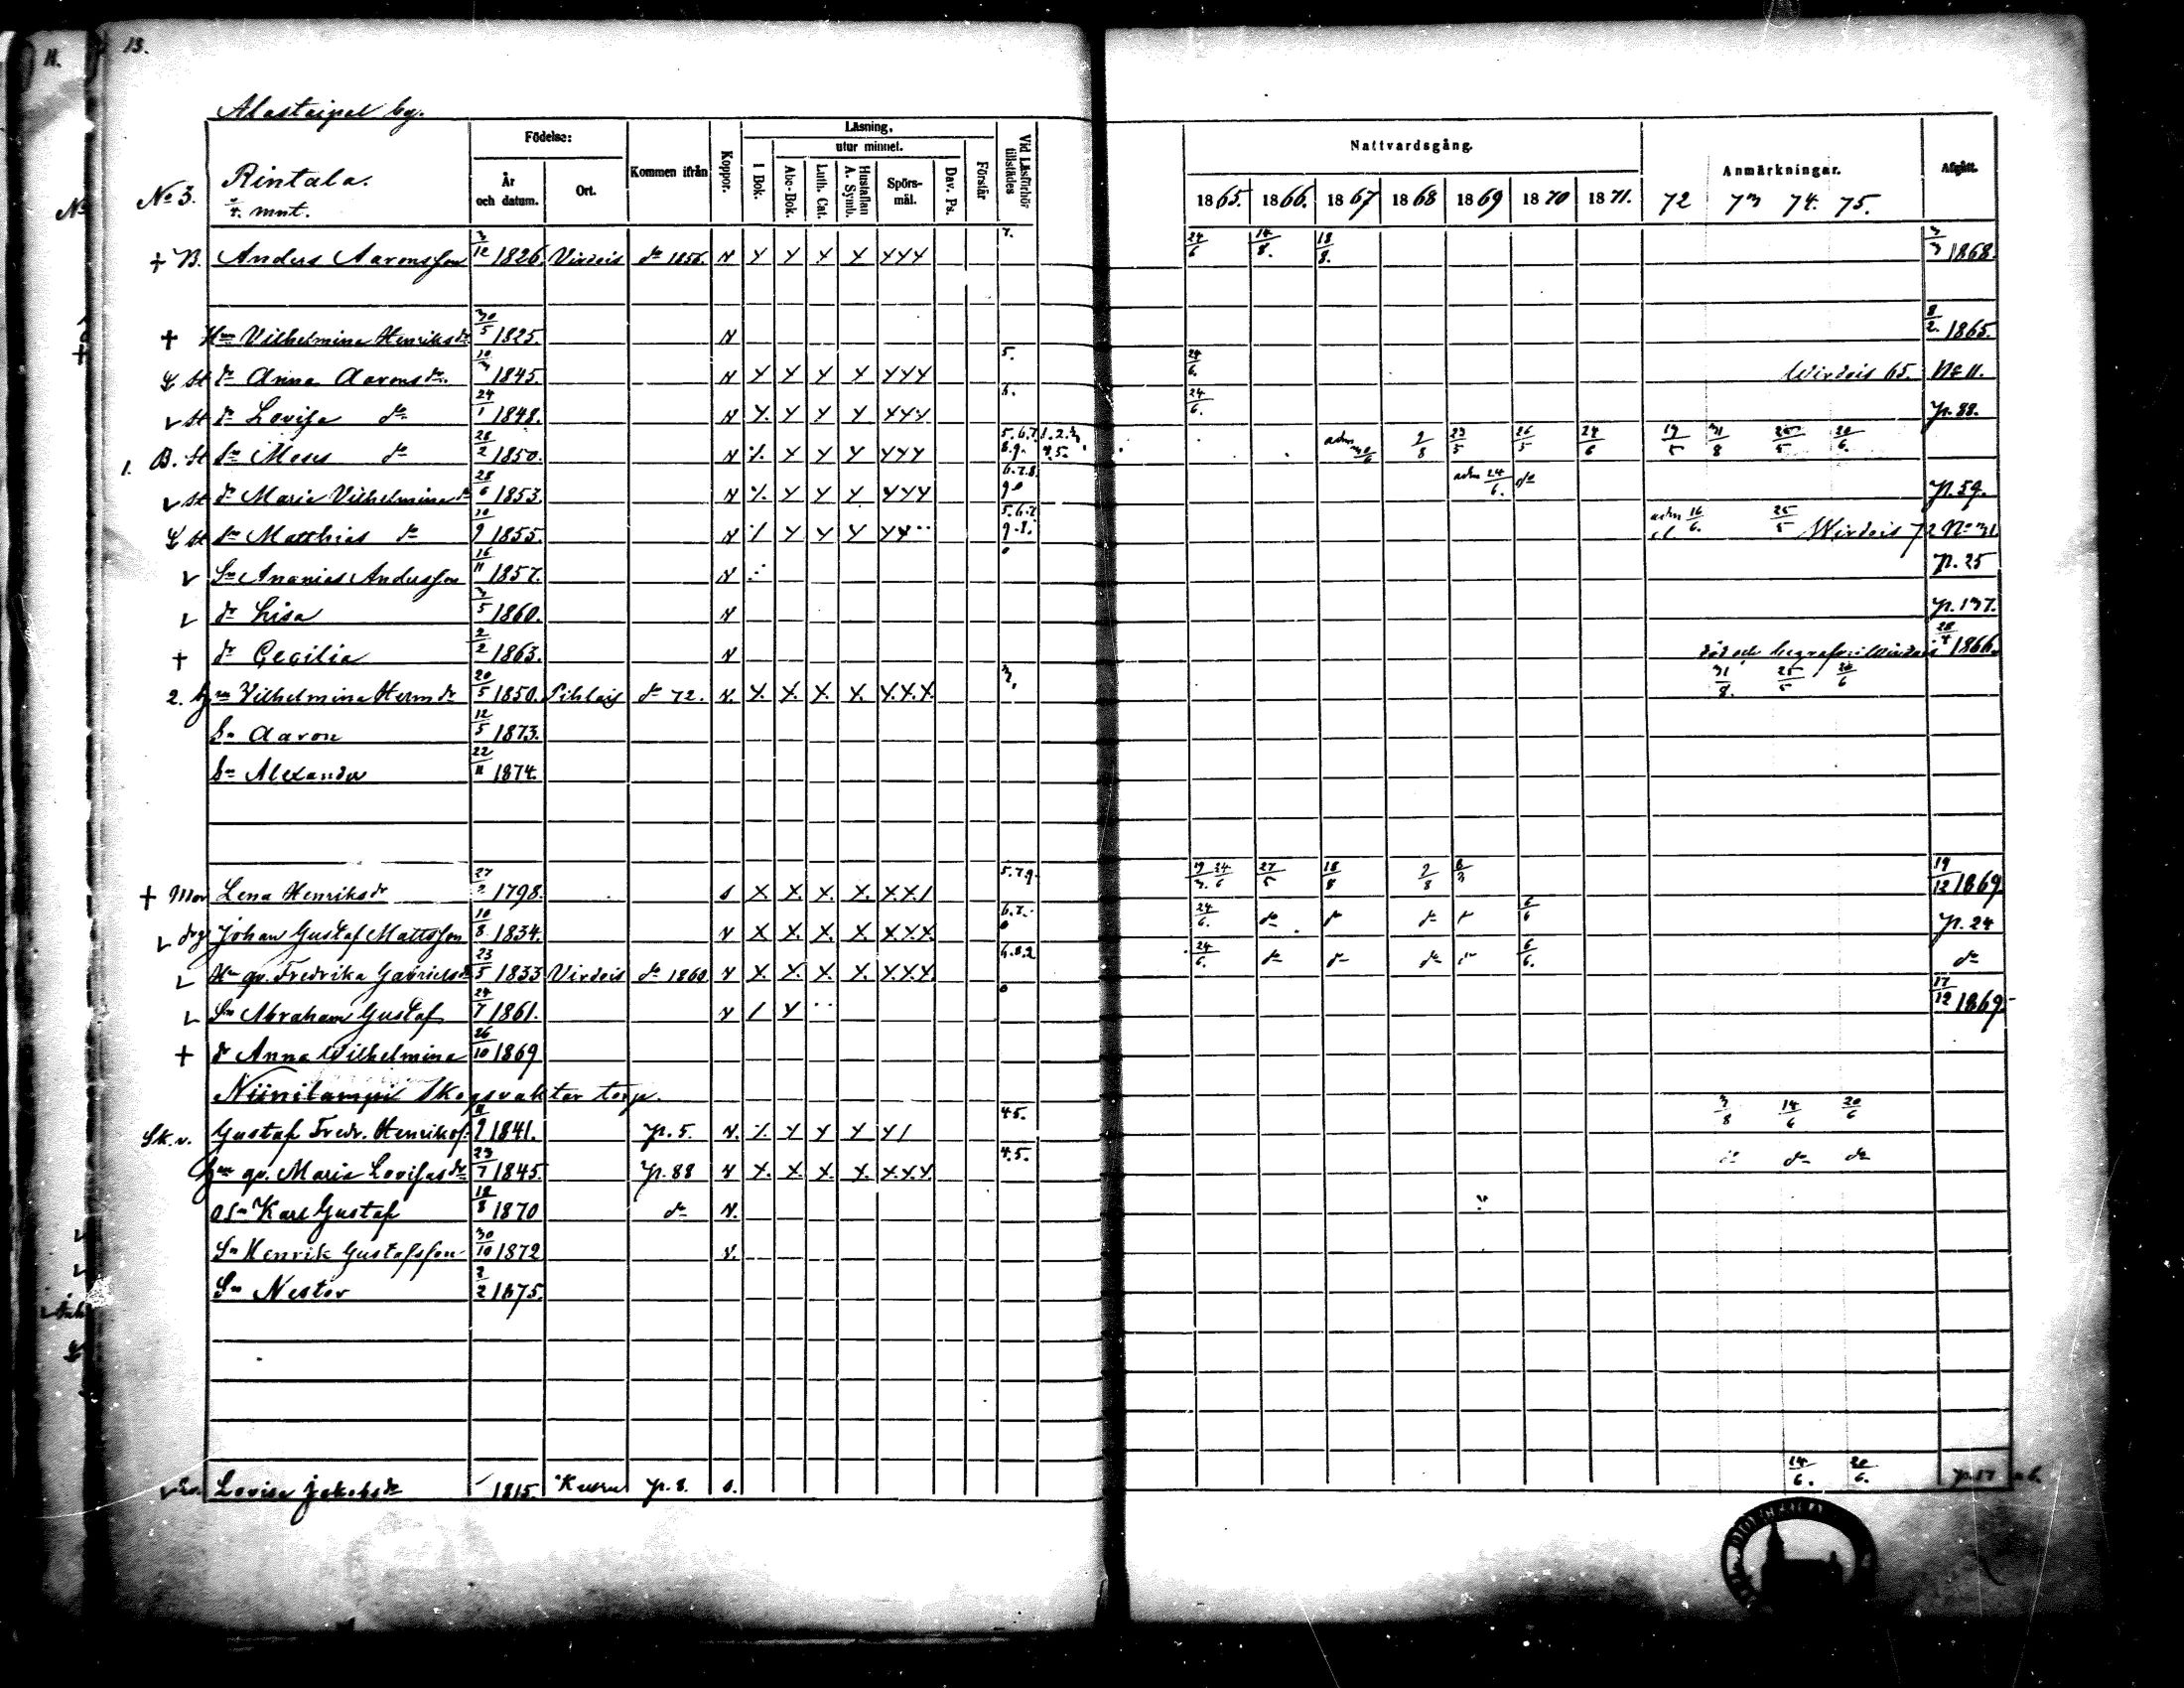 11.
13.
Alastaipal by.
No 3. Rintala.
mnt.
Födelse:
År och datum.
Ort.
Kommen ifrån
Koppor.
Läsning,
utur minnet.
I Bok.
Abc-Bok.
Luth. Cat.
Hustaflan A. Symb.
Spörsmål.
Dav. Ps.
Förstår
Vid Läsförhör tillstädes
Nattvardsgång.
1865. 1866. 1867 1868 1869 1870 1871.
Anmärkningar.
72 73 74. 75.
Afgått.
+ B. Anders Aaronsson 3/12 1826. Virdois do 1856. 7. 24/6 14/8. 18/8. 3/3 1868.
+ Hu Vilhelmina Henriksdr 30/5 1825. 8/2. 1865.
St dr Anna Aaronsdr. 10/3 1845. 5. 24/6. Wirdois 65. No 11.
v St dr Lovisa do 24/1 1848. 6. 24/6. p. 88.
1. B. St Sn Moses do 28/2 1850. adm 30/6 2/8 23/5 26/5 24/6 19/5 31/8 25/5 20/6.
v St dr Maria Vilhelmina do 28/6 1853. 6.7.8. adm 24/6. do p. 59.
St Sn Matthias do 20/9 1855. 5.6.7. adm 16/6. 25/5 Wirdois 72 No 31
v Sn Ananias Andersson 16/11 1857. p. 25
v dr Lisa 3/5 1860. p. 137.
+ dr Cecilia 2/2 1863. död och begrafven i Wirdois 28/4 1866.
2. Hu Vilhelmina Hermdr 20/5 1850. Pihlaj do 72. 3. 31/8. 25/5 20/6
Sn Aaron 12/5 1873.
Sn Alexander 22/11 1874.
+ Mor Lena Henriksdr 27/2 1798. 5.7.9. 19/3. 24/6 27/5 18/8 2/8 19/12 1869
v drg Johan Gustaf Mattsson 10/8 1834. 6.7. 24/6. do do do 6/6 p. 24
v Hu gv. Fredrika Gabrielsdr 23/5 1833 Virdois do 1860 6.8.2 24/6. do do do 6/6. do
v Sn Abraham Gustaf 24/7 1861. 17/12 1869.
+ dr Anna Wilhelmina 26/10 1869
Niinilampi Skogsvaktar torp.
Sk.v. Gustaf Fredr. Henrikss. 9 1841. p. 5. 4 5. 3/8 14/6 20/6
Hu gv. Maria Lovisasdr 23/7 1845. p. 88 4.5. do do
oSn Karl Gustaf 18/8 1870 do
Sn Henrik Gustafsson 30/10 1872
Sn Nestor 2/2 1875.
Lovisa Jakobsdr 1815. Kuru p. 8. 14/6. 20/6. p. 17